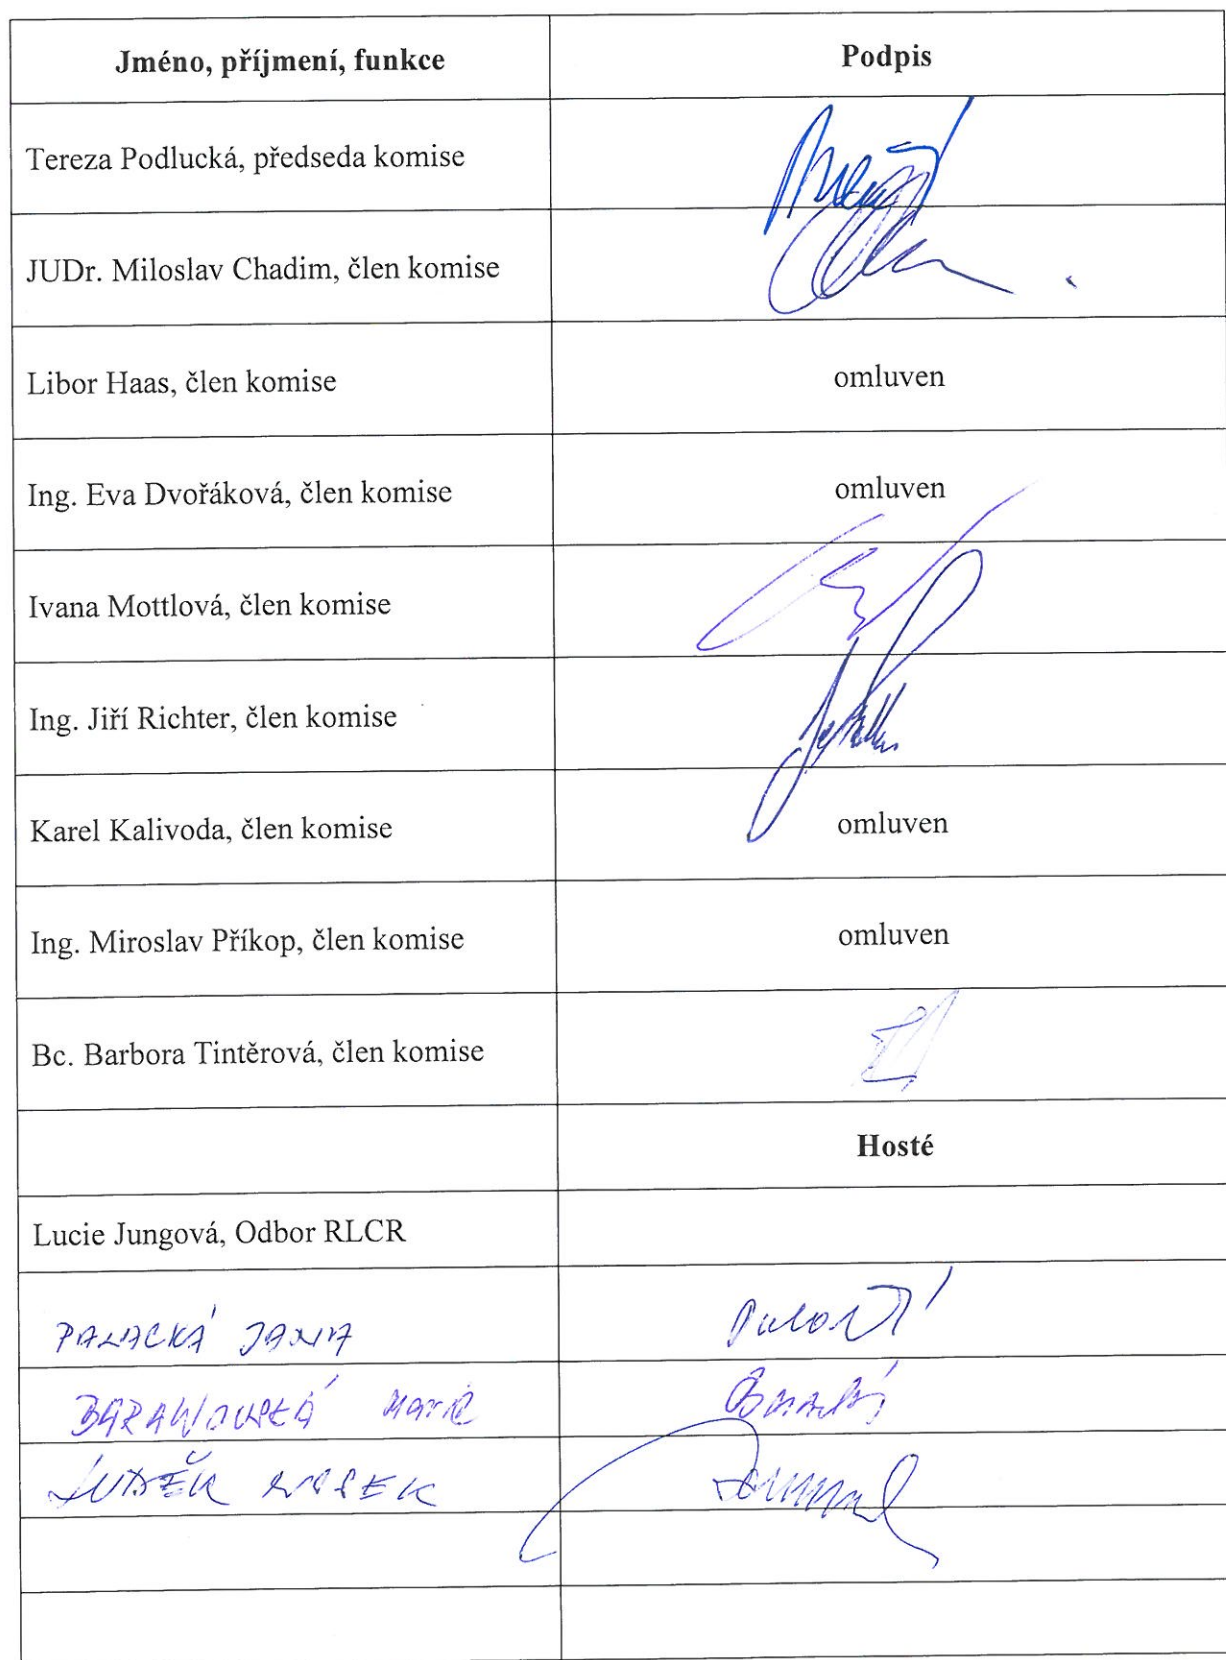 Jméno, příjmení, funkce Podpis
Tereza Podlucká, předseda komise
JUDr. Miloslav Chadim, člen komise
Libor Haas, člen komise omluven
Ing. Eva Dvořáková, člen komise omluven
Ivana Mottlová, člen komise
Ing. Jiří Richter, člen komise
Karel Kalivoda, člen komise omluven
Ing. Miroslav Příkop, člen komise omluven
Bc. Barbora Tintěrová, člen komise
Hosté
Lucie Jungová, Odbor RLCR
PALACKÁ JANA
LUDĚK